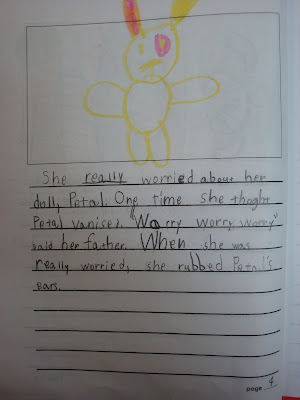 She really worried about her
doll, Petal. One time she thoght
Petal vanised. "Worry worry worry"
said her father. When she was
really worried, she rubbed Petal's
ears.
page 4